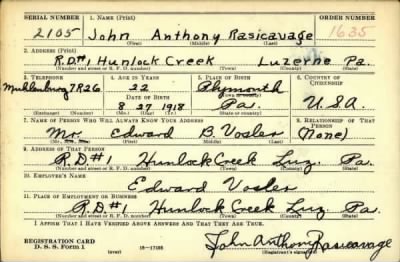 SERIAL NUMBER 1. NAME (Print) ORDER NUMBER
2105 John Anthony Rasicavage 1635
(First) (Middle) (Last)
2. ADDRESS (Print)
R.D.#1 Hunlock Creek Luzerne Pa.
(Number and street or R. F. D. number) (Town) (County) (State)
3. TELEPHONE 4. AGE IN YEARS 5. PLACE OF BIRTH 6. COUNTRY OF CITIZENSHIP
Muhlenburg 7R26 22 Plymouth
DATE OF BIRTH
8 27 1918 Pa. U.S.A.
7. NAME OF PERSON WHO WILL ALWAYS KNOW YOUR ADDRESS 8. RELATIONSHIP OF THAT PERSON
Mr. Edward B. Vosler (None)
9. ADDRESS OF THAT PERSON
R.D.#1 Hunlock Creek Luz. Pa.
(Number and street or R. F. D. number) (Town) (County) (State)
10. EMPLOYER'S NAME
Edward Vosler
11. PLACE OF EMPLOYMENT OR BUSINESS
R.D.#1 Hunlock Creek Luz. Pa.
(Number and street or R. F. D. number) (Town) (County) (State)
I AFFIRM THAT I HAVE VERIFIED ABOVE ANSWERS AND THAT THEY ARE TRUE.
REGISTRATION CARD
D. S. S. Form 1 (over) John Anthony Rasicavage